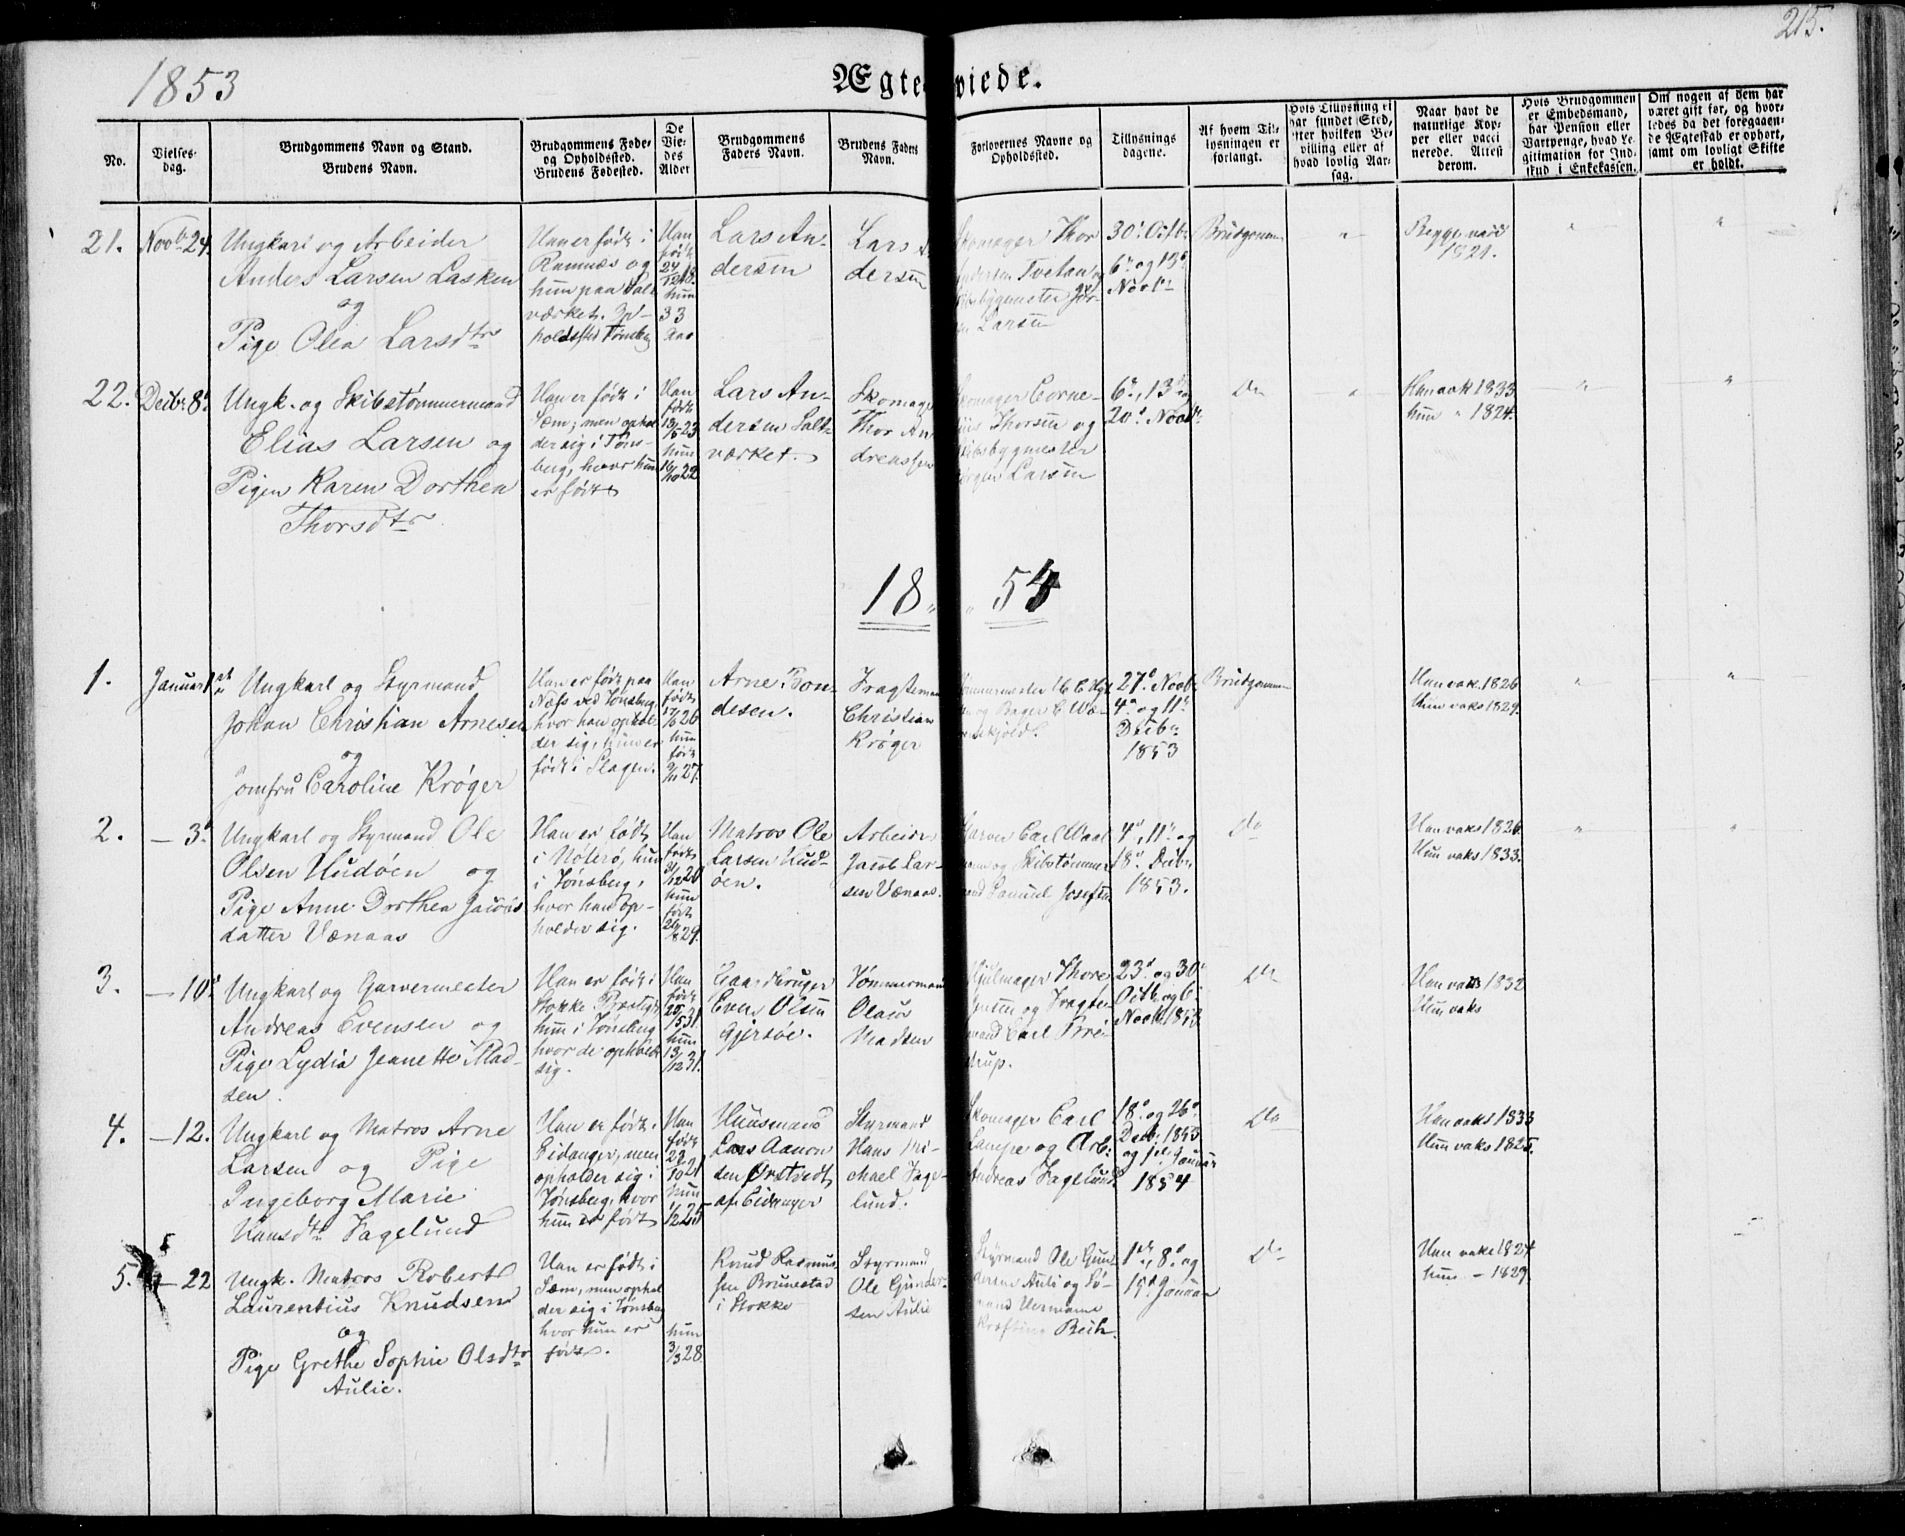 215.
1853
Ægteviede.
No.
Vielses-
dag.
Brudgommens Navn og Stand.
Brudens Navn.
Brudgommens Føde-
og Opholdssted.
Brudens Fødested.
De
Vie-
des
Alder
Brudgommens
Faders Navn.
Brudens Faders
Navn.
Forlovernes Navne og
Opholdssted.
Tillysnings
dagene.
Af hvem Til-
lysningen er
forlangt.
Hvis Tillysning ei
har fundet Sted,
efter hvilken Be-
villing eller af
hvad lovlig Aar-
sag.
Naar havt de
naturlige Kop-
per eller vacci
nerede. Attest
derom.
Hvis Brudgommen
er Embedsmand,
har Pension eller
Vartpenge, hvad Le-
gitimation for Ind-
skud i Enkekassen.
Om nogen af dem har
været gift før, og hvor-
ledes da det foregaaen-
de Ægteskab er ophørt,
samt om lovligt Skifte
er holdt.
21.
Novbr 24
Ungkarl og Arbeider
Anders Larsen Lasken
og
Pige Olea Larsdtr
Han er født i
Ramnæs og
hun paa Salt
værket. Op-
holdssted Tønsberg
Han
født
24/12 18.
hun
33
Aar
Lars An-
dersen
Lars
dersen
Skomager Thor
Andersen Tvetan og
Skibsbygmester Jør-
gen Larsen
30d Octbr
6d og 13d
Novbr
Brudgommen
"
Begge vacc
1821.
"
"
22.
Decbr 8d
Ungk. og Skibstømmermand
Elias Larsen og
Pigen Karen Dorthea
Thorsdtr
Han er født i
Sem, men ophol
der sig i Tøns-
berg, hvor hun
er født
Han
født
13/6 23
hun
16/10 22
Lars An-
dersen Salt-
værket.
Skomager
Thor An
dreassen
Skomager Corne-
lius Thorsen og
Skibsbygmester
Jørgen Larsen
6d, 13d og
20d Novbr
Do
"
Han vak 1833
hun " 1824.
"
"
18 " " 54
1.
Januar 1st
Ungkarl og Styrmand
Johan Christian Arnesen
og
Jomfru Caroline Krøger
Han er født paa
Næs ved Tønsberg
hvor han ophol
der sig, hun er
født i Slagen.
Han
født
17/6 26
hun
født
9/11 27.
Arne Bon-
desen.
Fragtemand
Christian
Krøger
27d Novbr
4d og 11d
Decbr
1853
Brudgommen
Han vak. 1826
Hun vaks 1829.
"
"
2.
— 3d
Ungkarl og Styrmand Ole
Olsen Hudøen og
Pige Anne Dorthea Jacobs
datter Vænaas
Han er født
i Nøterø, hun
i Tønsberg,
hvor han op-
holder sig.
Han
født
31/12 20
hun
født
26/8 29.
Matros Ole
Larsen Hud-
øen.
Arbeider
Jacob Lar-
sen Vænaas.
Garver Carl Waal
mann og Skibstømmer
mand Samuel Josefsen
4d, 11d og
18d Decbr
1853.
Do
Han vaks 1826.
Hun vaks 1833.
"
"
3.
— 10d
Ungkarl og Garvermester
Andreas Evensen og
Pige Lydia Jeanette Mad-
sen.
Han er født i
Stokke Præstegj.
hun i Tønsberg
hvor de opholde
sig.
Han
født
20/5 31.
hun
13/12 31.
Gaardbruger
Even Olsen
Gjersøe.
Tømmermand
Olaus
Madsen
Hjulmager Thore
Jensen og Fragte-
mand Carl Brei-
trup.
23d og 30d
Octbr og 6d
Novbr 1853
Do
Han vaks 1832
Hun vaks
4.
— 12.
Ungkarl og Matros Arne
Larsen og Pige
Ingeborg Marie
Hansdtr Fagelund
Han er født i
Eidanger, men
opholder sig i
Tønsberg, hvor
hun er født
Han
født
22/10 21
hun
1/12 25
Huusmand
Lars Aamon
sen Ørstvedt
af Eidanger
Styrmand
Hans Mi-
chael Fage-
lund.
Skomager Carl
Lampe og Arb:
Andreas Fagelund
18d og 26d
Decbr 1853
og 1st Januar
1854
Do
Han vaks 1833
Hun vaks 1825.
5.
— 22
Ungk. Matros Robert
Laurentius Knudsen
og
Pige Grethe Sophie Olsdtr
Aulie.
Han er født i
Sem, men ophol
der sig i Tønsberg
hvor hun er
født.
hun
3/3 28
Knud Rasmus
sen Brunestad
i Stokke
Styrmand
Ole Gunder-
sen Aulie
Styrmand Ole Gun
dersen Auli og Sø-
mand Hermann
Krafting Bech.
1st, 8d og
15d Januar
Do
Han vaks 1827
hun — 1829.